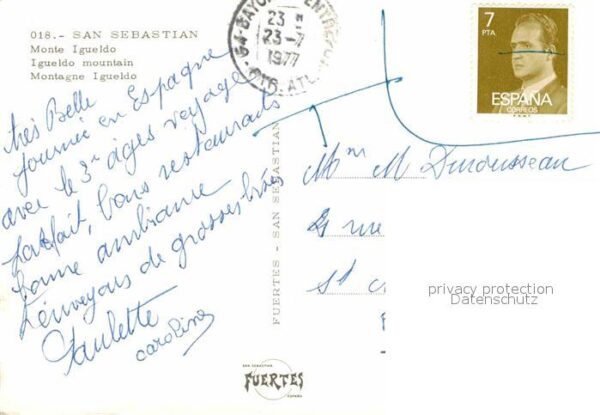 018.- SAN SEBASTIAN
Monte Igueldo
Igueldo mountain
Montagne Igueldo
très Belle
journée en Espagne
avec le 3e ages voyage
parfait, bons restaurants
bonne ambiance
envoyons de grosses bises
Paulette
caroline
FUERTES - SAN SEBASTIAN
SAN SEBASTIAN
FUERTES
ESPAÑA
64 BAYONNE ENTREPOT
23 H
23 -
1977
PYR. ATL
7
PTA
ESPAÑA
CORREOS
Mme M Durousseau
rue
St
privacy protection
Datenschutz